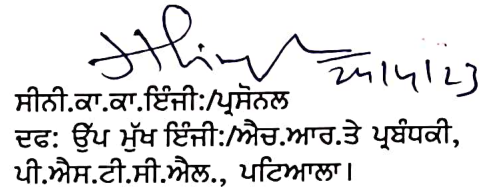 24/4/23
ਸੀਨੀ.ਕਾ.ਕਾ.ਇੰਜੀ:/ਪ੍ਰਸੋਨਲ
ਦਫ: ਉੱਪ ਮੁੱਖ ਇੰਜੀ:/ਐਚ.ਆਰ.ਤੇ ਪ੍ਰਬੰਧਕੀ,
ਪੀ.ਐਸ.ਟੀ.ਸੀ.ਐਲ., ਪਟਿਆਲਾ।